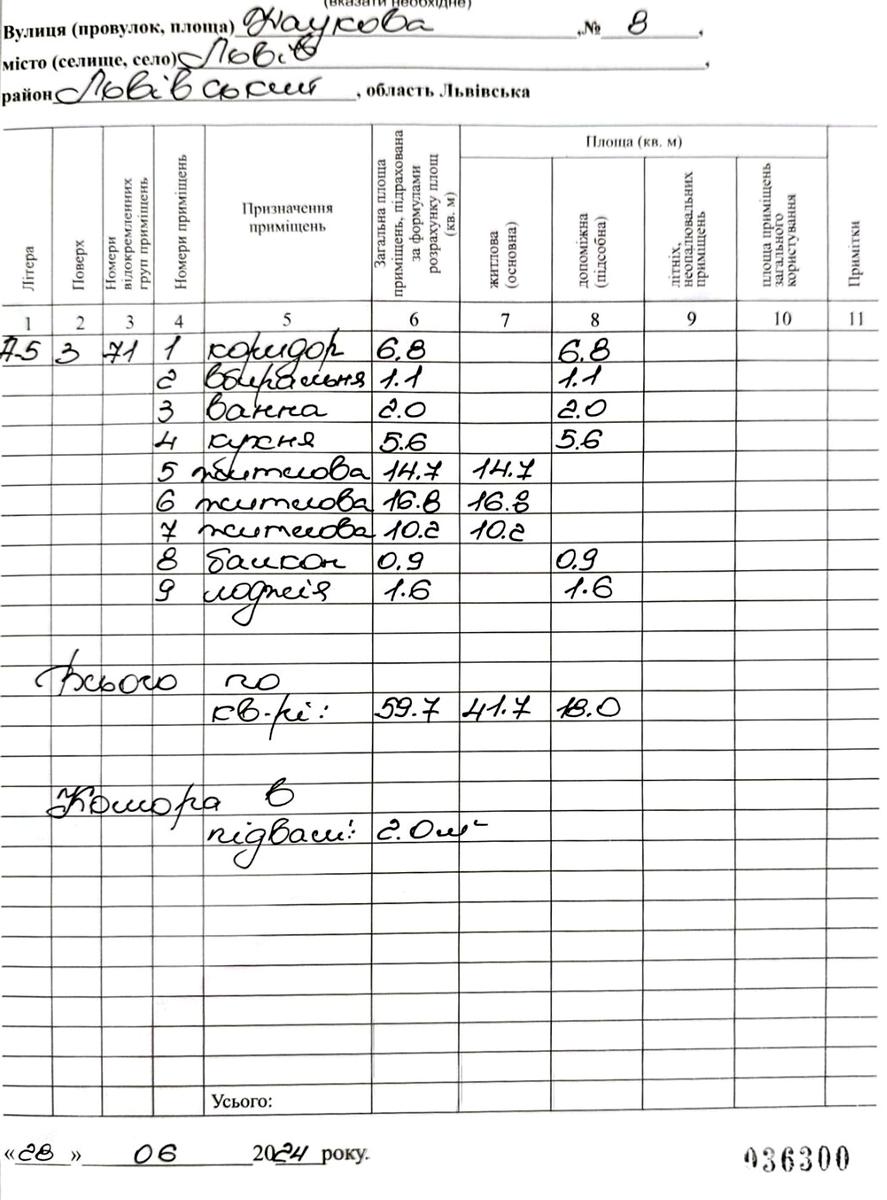 (вказати необхідне)
Вулиця (провулок, площа) Наукова ,№ 8 ,
місто (селище, село) Львів ,
район Львівський , область Львівська
Літера
Поверх
Номери відокремленних груп приміщень
Номери приміщень
Призначення приміщень
Загальна площа приміщень, підрахована за формулами розрахунку площ (кв. м)
Площа (кв. м)
житлова (основна)
допоміжна (підсобна)
літніх, неопалювальних приміщень
площа приміщень загального користування
Примітки
1 2 3 4 5 6 7 8 9 10 11
А-5 3 71 1 коридор 6.8 6.8
2 вбиральня 1.1 1.1
3 ванна 2.0 2.0
4 кухня 5.6 5.6
5 житлова 14.7 14.7
6 житлова 16.8 16.8
7 житлова 10.2 10.2
8 балкон 0.9 0.9
9 лоджія 1.6 1.6
Всього по
кв-рі: 59.7 41.7 18.0
Комора в
підвалі: 2.0м²
Усього:
«28» 06 2024 року.
036300